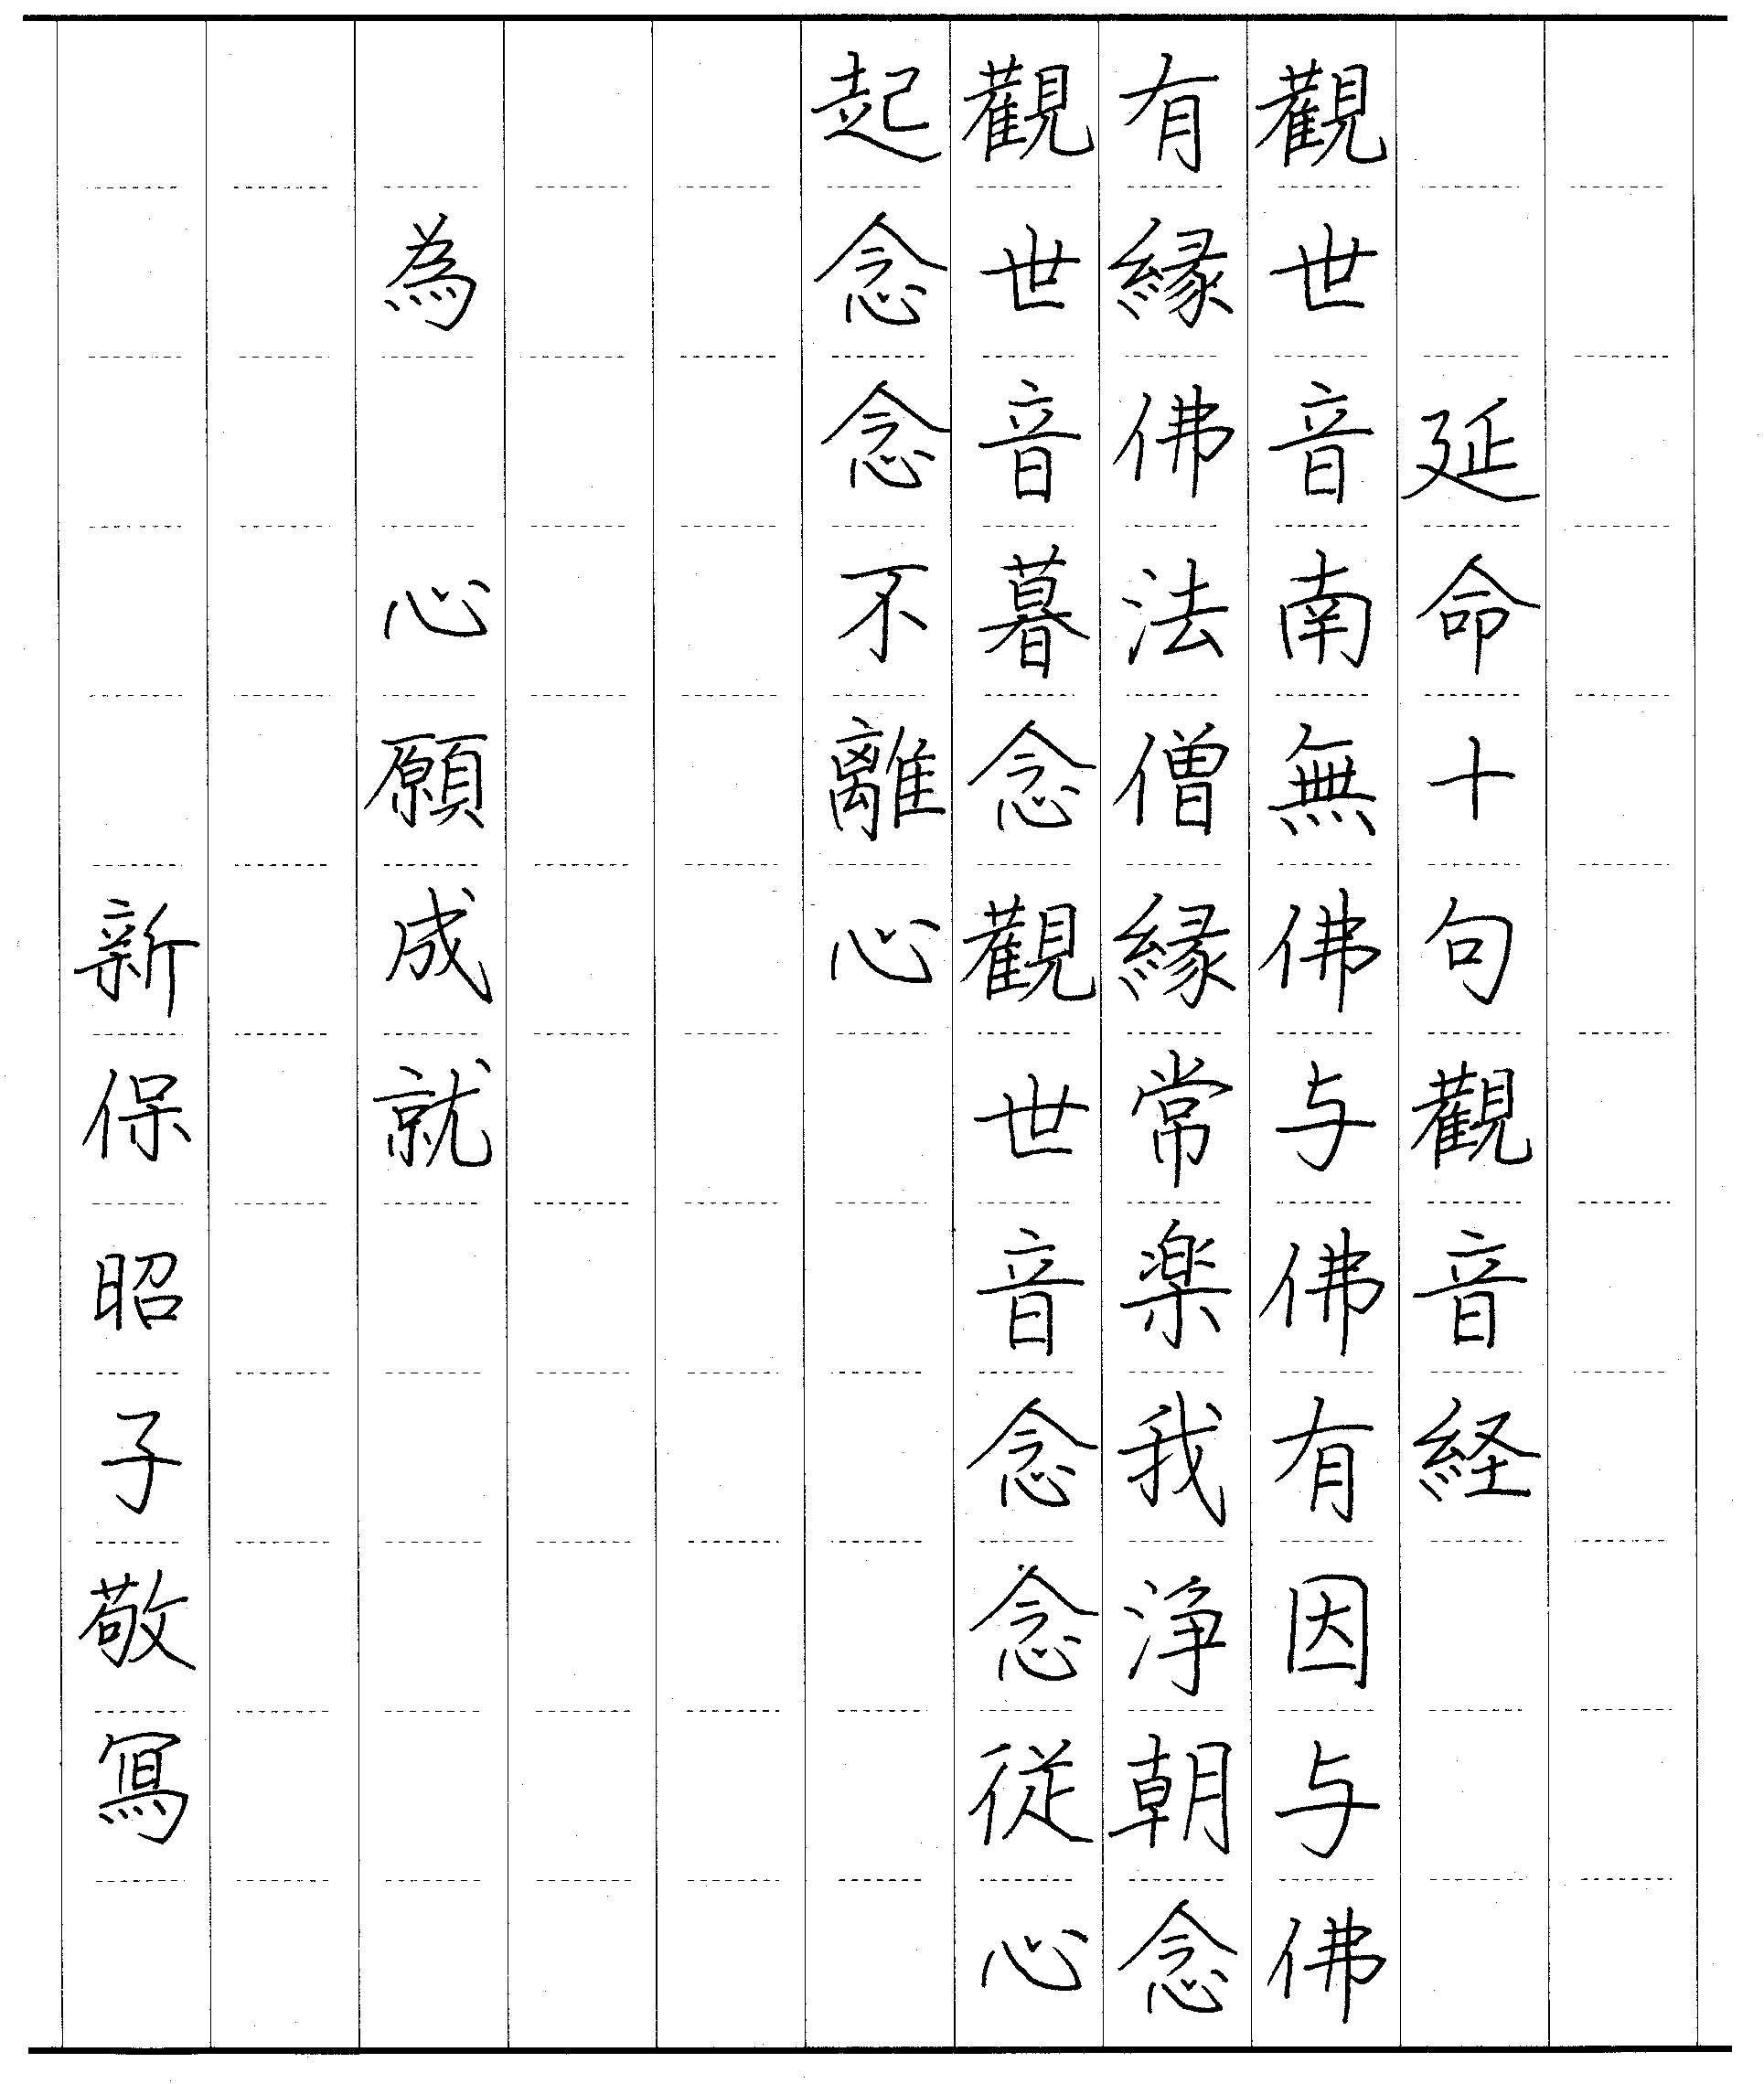 延命十句觀音経
觀世音南無佛与佛有因与佛
有縁佛法僧縁常楽我浄朝念
觀世音暮念觀世音念念従心
起念念不離心
為　心願成就
新保昭子敬冩